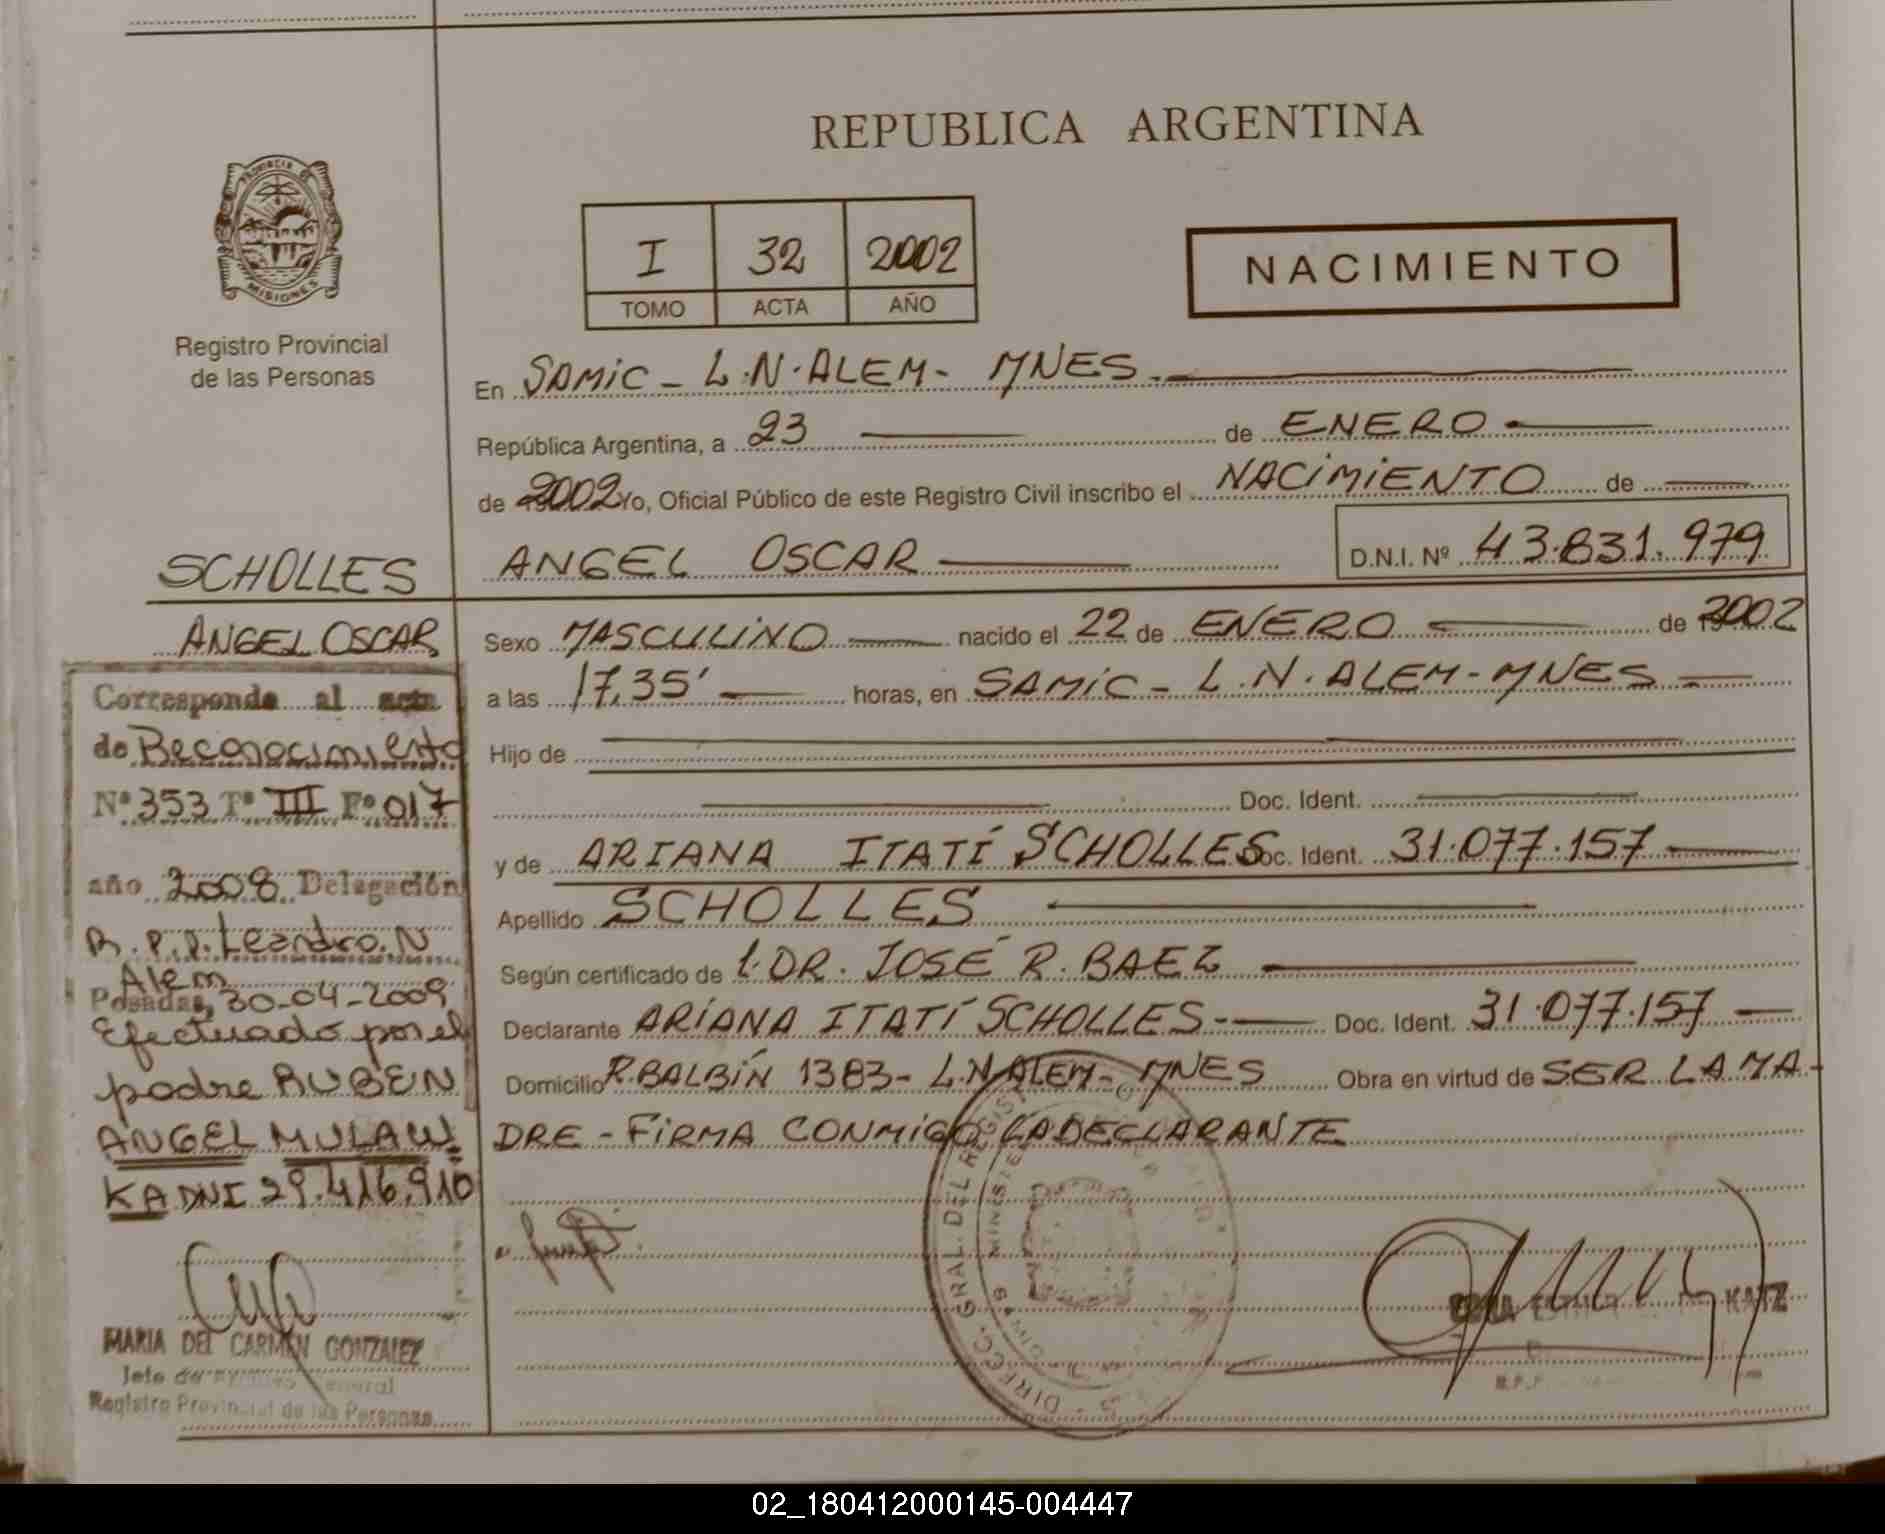 REPUBLICA ARGENTINA
PROVINCIA DE
MISIONES
Registro Provincial
de las Personas
I 32 2002
TOMO ACTA AÑO
NACIMIENTO
En SAMIC - L.N. ALEM - MNES.
República Argentina, a 23 de ENERO
de 2002 Yo, Oficial Público de este Registro Civil inscribo el NACIMIENTO de
ANGEL OSCAR D.N.I. Nº 43.831.979
SCHOLLES
ANGEL OSCAR
Corresponde al acta
de Reconocimiento
Nº 353 Tº III Fº 017
año 2008 Delegación
R.P.P. Leandro. N
Alem
Posadas, 30-04-2009
Efectuado por el
padre RUBEN
ANGEL MULAW
KA DNI 29.416.910
MARIA DEL CARMEN GONZALEZ
Registro Provincial de las Personas
Sexo MASCULINO nacido el 22 de ENERO de 2002
a las 17,35' horas, en SAMIC - L.N. ALEM - MNES
Hijo de
Doc. Ident.
y de ARIANA ITATÍ SCHOLLES Doc. Ident. 31.077.157
Apellido SCHOLLES
Según certificado de L. DR. JOSÉ R. BAEZ
Declarante ARIANA ITATÍ SCHOLLES - Doc. Ident. 31.077.157
Domicilio R. BALBÍN 1383 - L.N ALEM - MNES Obra en virtud de SER LA MA-
DRE - FIRMA CONMIGO LA DECLARANTE
DIRECC. GRAL. DEL REGIST
KATZ
02_180412000145-004447